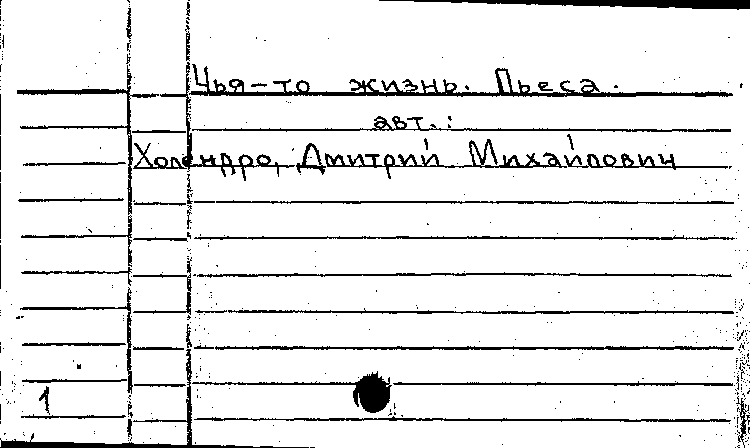 Чья-то жизнь. Пьеса.
авт.:
Холендро, Дмитрий Михайлович
1